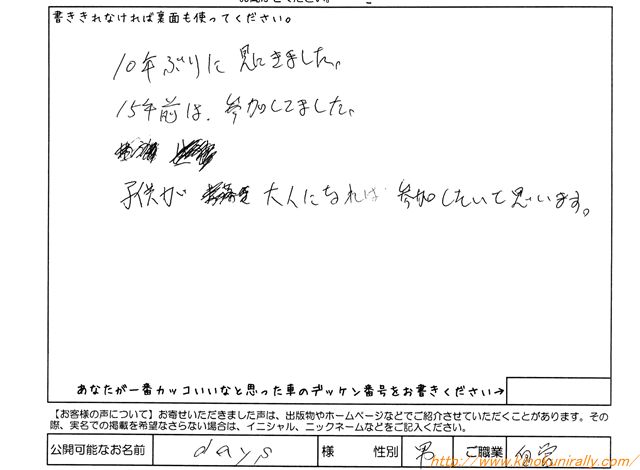 書ききれなければ裏面も使ってください。
10年ぶりに見にきました。
15年前は、参加してました。
子供が 大人になれば 参加したいて思います。
あなたが一番カッコいいなと思った車のデッケン番号をお書きください→
【お客様の声について】お寄せいただきました声は、出版物やホームページなどでご紹介させていただくことがあります。その
際、実名での掲載を希望なさらない場合は、イニシャル、ニックネームなどをご記入ください。
公開可能なお名前 days 様 性別 男 ご職業 自営